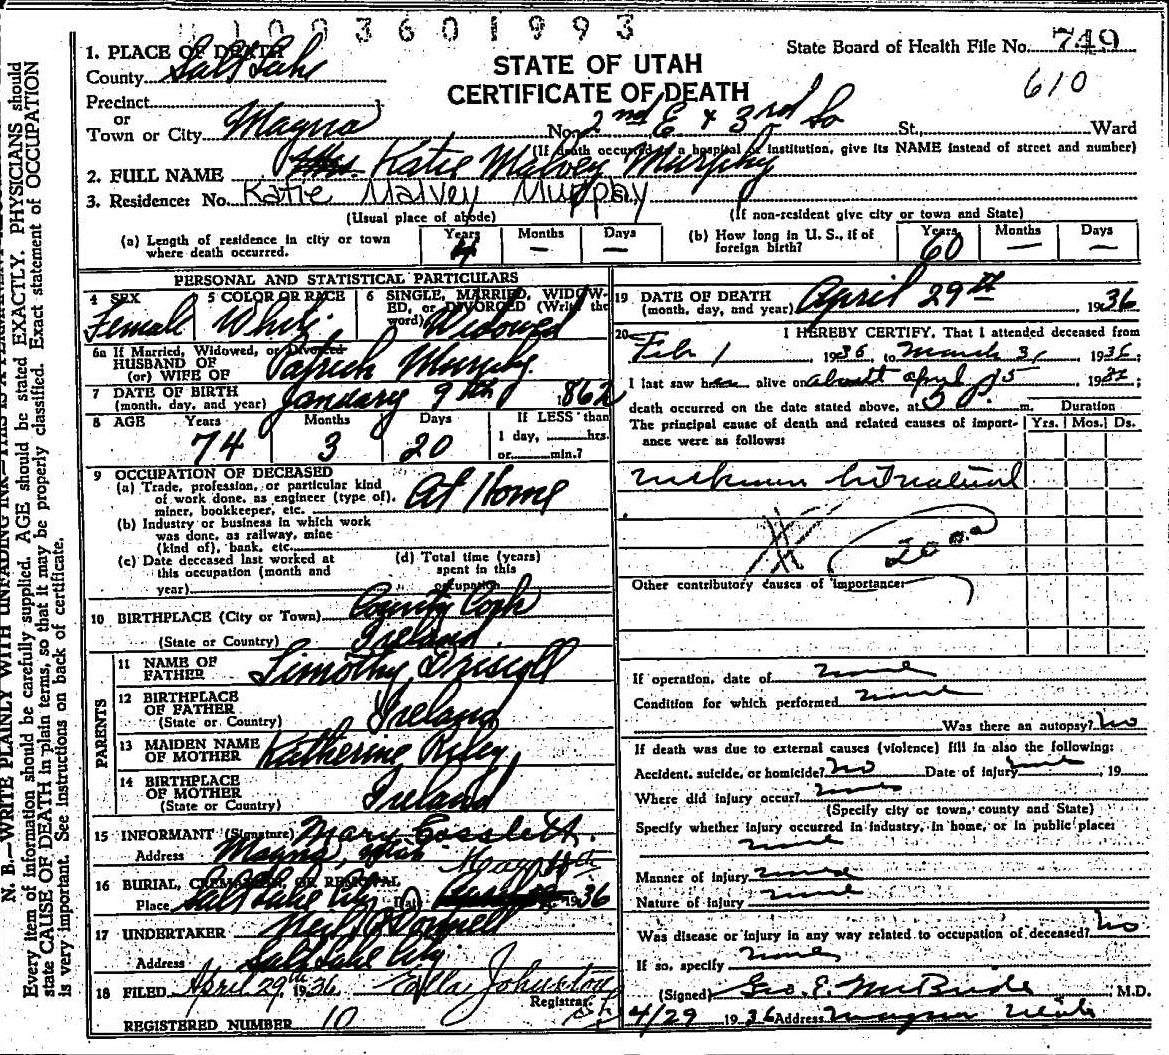 1003601993
State Board of Health File No. 749
610
STATE OF UTAH
CERTIFICATE OF DEATH
1. PLACE OF DEATH
County Salt Lake
Precinct
or
Town or City Magna No. 2nd E & 3rd So St., Ward
(If death occurred in a hospital or institution, give its NAME instead of street and number)
2. FULL NAME Mrs Katie Malvey Murphy
3. Residence: No. Katie Malvey Murphy
(Usual place of abode) (If non-resident give city or town and State)
(a) Length of residence in city or town where death occurred. Years 4 Months — Days —
(b) How long in U. S., if of foreign birth? Years 60 Months — Days —
PERSONAL AND STATISTICAL PARTICULARS
4 SEX Female
5 COLOR OR RACE White
6 SINGLE, MARRIED, WIDOWED, or DIVORCED (Write the word) Widowed
6a If Married, Widowed, or Divorced
HUSBAND OF
(or) WIFE OF Patrick Murphy
7 DATE OF BIRTH
(month, day, and year) January 9th 1862
8 AGE Years 74 Months 3 Days 20 If LESS than
1 day, hrs.
or min.?
9 OCCUPATION OF DECEASED
(a) Trade, profession, or particular kind
of work done, as engineer (type of),
miner, bookkeeper, etc. At Home
(b) Industry or business in which work
was done, as railway, mine
(kind of), bank, etc.
(c) Date deceased last worked at
this occupation (month and
year)
(d) Total time (years)
spent in this
occupation
10 BIRTHPLACE (City or Town) County Cork
(State or Country) Ireland
PARENTS
11 NAME OF
FATHER Timothy Driscoll
12 BIRTHPLACE
OF FATHER
(State or Country) Ireland
13 MAIDEN NAME
OF MOTHER Katherine Riley
14 BIRTHPLACE
OF MOTHER
(State or Country) Ireland
15 INFORMANT (Signature) Mary Cosslett
Address Magna, Utah
16 BURIAL, CREMATION, OR REMOVAL
Place Salt Lake City Date May 1936
17 UNDERTAKER Neil O'Donnell
Address Salt Lake City
18 FILED April 29th 1936 Ella Johnston
Registrar.
REGISTERED NUMBER 10
19 DATE OF DEATH
(month, day, and year) April 29th 1936
20 I HEREBY CERTIFY, That I attended deceased from
Feb 1 1936, to March 31 1936;
I last saw her alive on about april 15 19
death occurred on the date stated above, at 5 p. m. Duration
The principal cause of death and related causes of importance were as follows: Yrs. Mos. Ds.
unknown but natural
200
Other contributory causes of importance:
If operation, date of none
Condition for which performed none
Was there an autopsy? no
If death was due to external causes (violence) fill in also the following:
Accident, suicide, or homicide? no Date of injury none, 19
Where did injury occur? none
(Specify city or town, county and State)
Specify whether injury occurred in industry, in home, or in public place:
none
Manner of injury none
Nature of injury none
Was disease or injury in any way related to occupation of deceased? no
If so, specify none
(Signed) Geo. E. McBride M.D.
4/29 1936 Address Magna Utah
N. B.—WRITE PLAINLY WITH UNFADING INK—THIS IS A PERMANENT
Every item of information should be carefully supplied. AGE should be stated EXACTLY. PHYSICIANS should
state CAUSE OF DEATH in plain terms, so that it may be properly classified. Exact statement of OCCUPATION
is very important. See instructions on back of certificate.